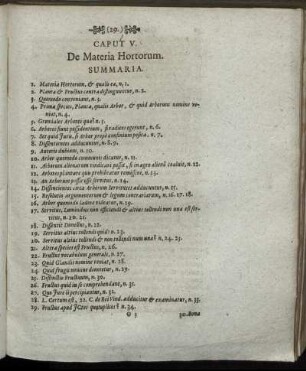 (29.)
CAPUT V.
De Materia Hortorum.
SUMMARIA.
1. Materia Hortorum, & qualis ea, n. 1.
2. Planta & Fructus contradistinguuntur, n. 2.
3. Quomodo conveniant, n. 3.
4. Prima species, Planta, qualis Arbor, & quid Arborum nomine veniat, n. 4.
5. Grandiales Arbores quæ n. 5.
6. Arbores sunt possidentium, si radices egerint, n. 6.
7. Set quid juris, si arbor propè confinium posita, n. 7.
8. Distinctiones adducuntur, n. 8. 9.
9. Autoris dubium, n. 10.
10. Arbor quomodo communis dicatur, n. 11.
11. Arborem alienatam vindicari posse, si in agro alieno coaluit, n. 12.
12. Arbores plantare quis prohibeatur remissivè, n. 13.
13. An Arborum possessio servetur, n. 14.
14. Distinctiones circa Arborum Servitutes adducuntur, n. 15.
15. Resolutio argumentorum & legum contrariarum, n. 16. 17. 18.
16. Arbor quomodo Luminibus noceat, n. 19.
17. Servitus, Luminibus non officiendi & altius tollendi non una est servitus, n. 20. 21.
18. Disserit Donellus, n. 22.
19. Servitus altius tollendi quid? n. 23.
20. Servitus altius tollendi & non tollendi num una? n. 24. 25.
21. Altera species est Fructus, n. 26.
22. Fructus vocabulum generale, n. 27.
23. Quid Glandis nomine veniat, n. 28.
24. Quid frugis nomine denotetur, n. 29.
25. Distinctio Fructuum, n. 30.
26. Fructus quid in se comprehendant, n. 31.
27. Quo Jure ii percipiantur, n. 32.
28. L. Certum est, 22. C. de Rei Vind. adducitur & examinatur, n. 33.
29. Fructus apud JCtos quotuplices? n. 34.
G 3
30. Bona